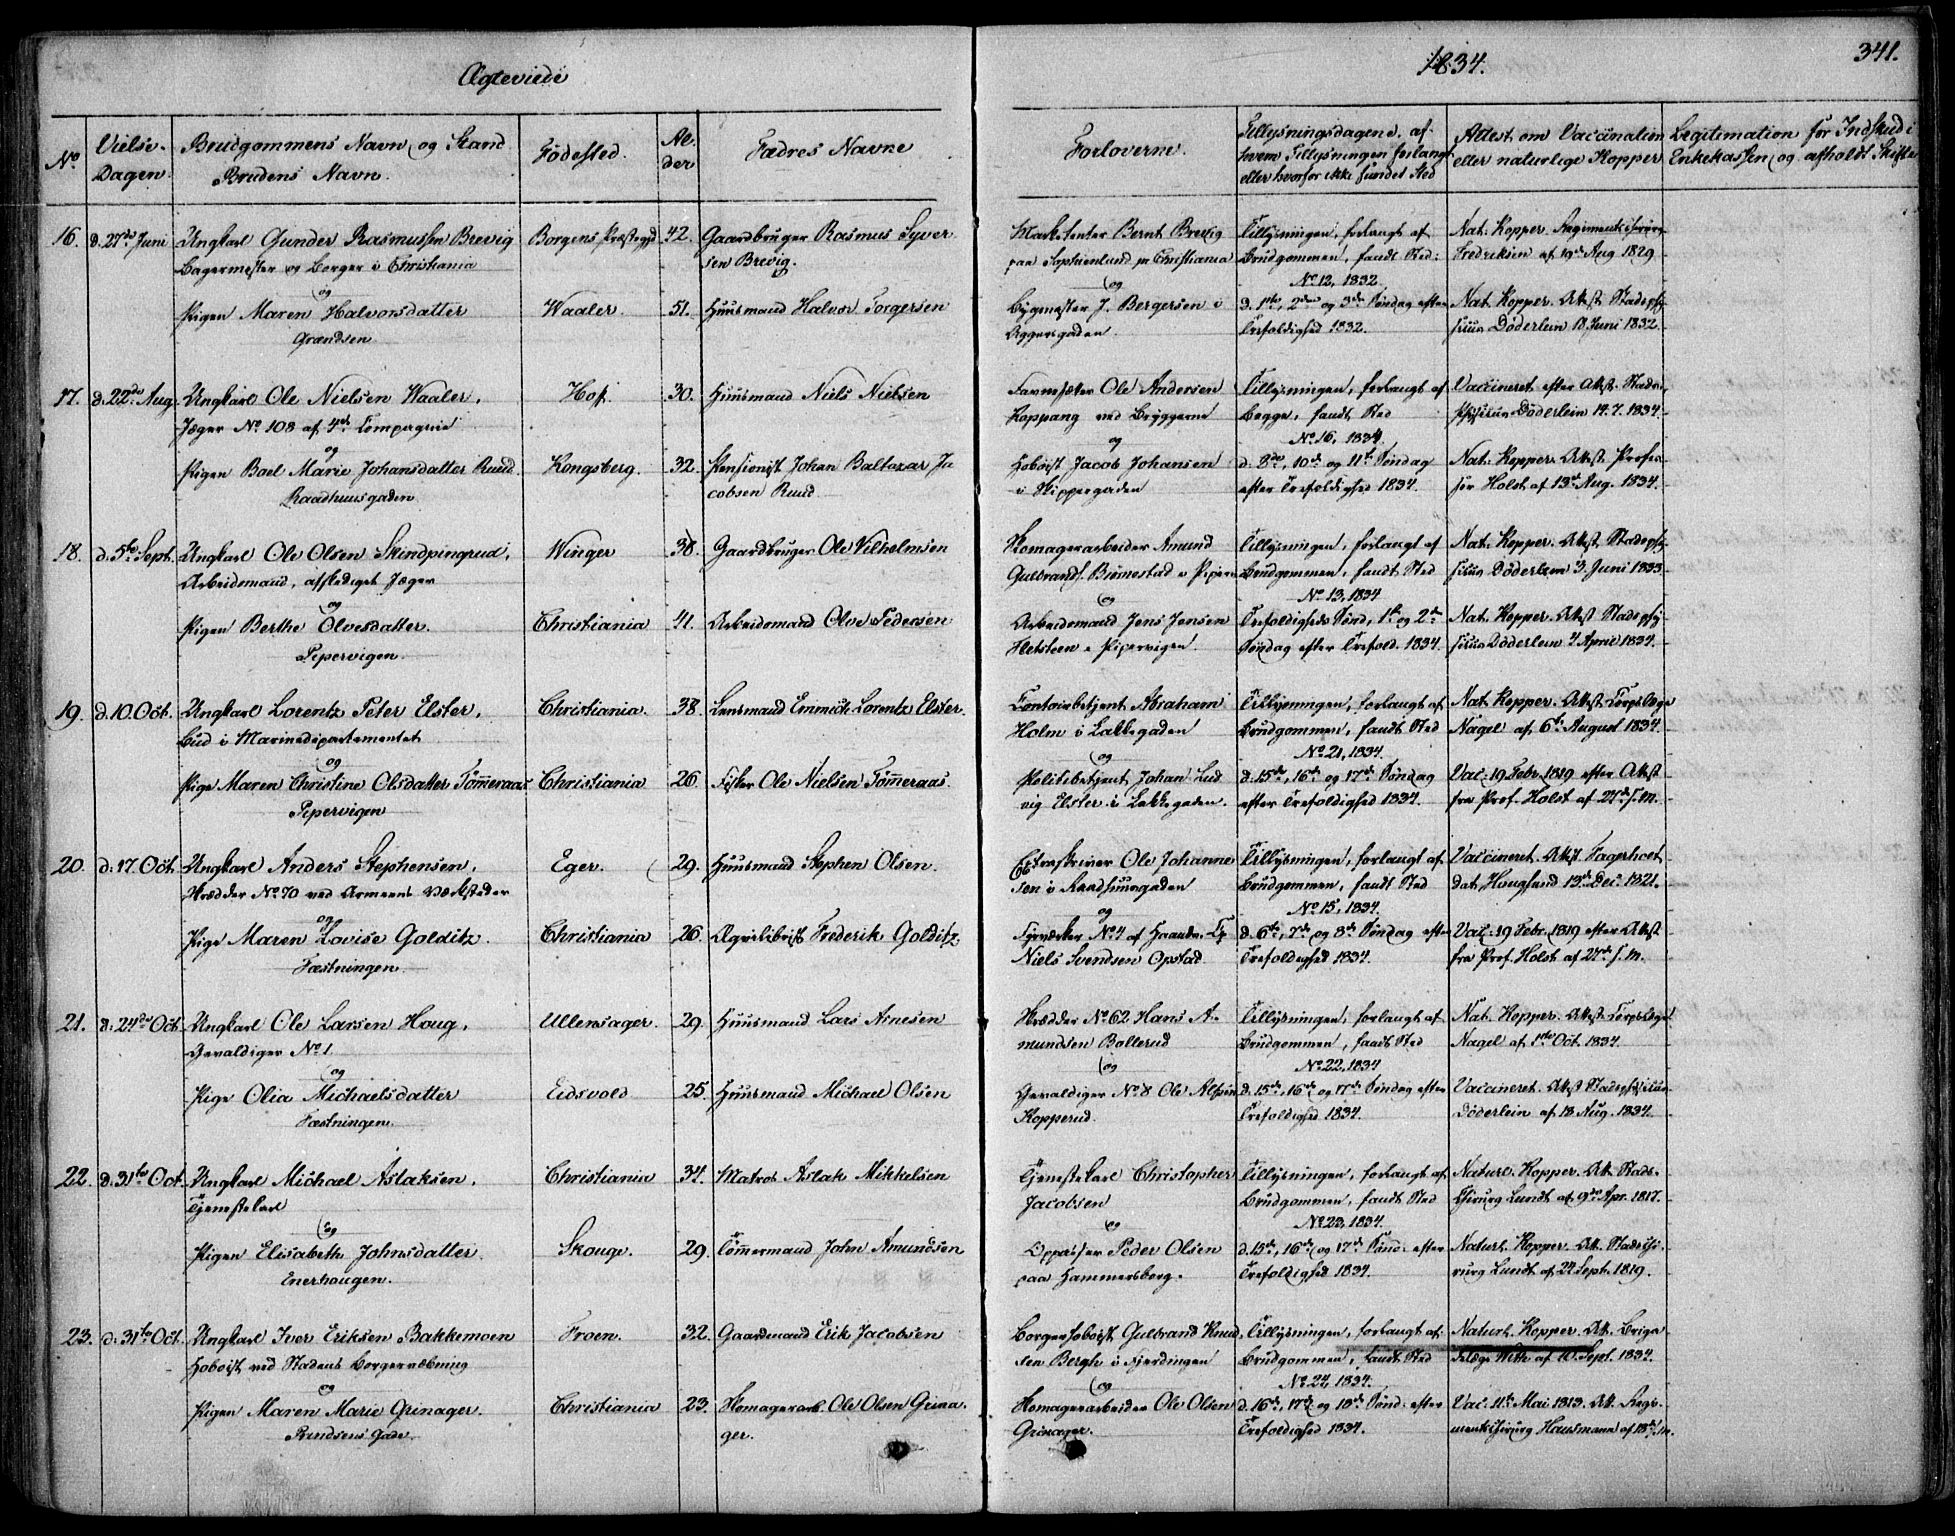 Ægteviede
1834.
341.
No.
Vielse-Dagen.
Brudgommens Navn og Stand
Brudens Navn.
Fødested.
Al-der
Fædres Navne
Forloverne.
Tillysningsdagene, af
hvem Tillysningen forlangt
eller hvorfor ikke fundet Sted
Attest om Vaccination
eller naturlige Kopper
Legitimation for Indskud i
Enkekassen og afholdt Skifte
16. d. 27de Juni Ungkarl Gunder Rasmussen Brevig Borgens Præstegjd 42. Gaardbruger Rasmus Syver
Bagermester og Borger i Christiania sen Brevig.
og
Pigen Maren Halvorsdatter Waaler. 51. Huusmand Halvor Torgersen
Grændsen
Marketenter Bernt Brevig Tillysningen, forlangt af Nat. Kopper. Regimentschirurg
paa Sophienlund pr Christiania Brudgommen, fandt Sted: Fredriksen af 19de Aug 1829
og No. 12, 1832
Bygmester J. Bergersen i d. 1ste, 2den og 3die Søndag efter Nat. Kopper. Attest Stadsphy
Aggersgaden. Trefoldighed 1832. sicus Döderlein 18 Juni 1832.
17. d. 22de Aug. Ungkarl Ole Nielsen Waaler, Hof. 30. Huusmand Niels Nielsen
Jæger No. 108 af 4de Compagnie
og
Pigen Boel Marie Johansdatter Ruud Kongsberg. 32. Pensionist Johan Baltazar Ja
Raadhuusgaden. cobsen Ruud
Favnesætter Ole Andersen Tillysningen, forlangt af Vaccineret efter Attst. Stads-
Koppang ved Bryggerne Begge, fandt Sted physicus Döderlein 14. 7. 1834.
og No. 16, 1834.
Hoboist Jacob Johansen d. 8de, 10de og 11te Søndag Nat: Kopper. Attst. Profes
i Skippergaden efter Trefoldighed 1834. sor Holst af 13de Aug. 1834.
18. d. 5te Sept. Ungkarl Ole Olsen Skindpingrud, Winger 38. Gaardbruger Ole Vilhelmsen
Arbeidsmand, afskediget Jæger
og
Pigen Berthe Olvesdatter. Christiania 41. Arbeidsmand Olve Pedersen
Pipervigen.
Skomagerarbeider Amund Tillysningen, forlangt af Nat. Kopper. Attst. Stadsphy
Gulbrands. i Piperv Brudgommen, fandt Sted sicus Döderlein 3. Juni 1833
og No. 13, 1834
Arbeidsmand Jens Jensen Trefoldigheds Sønd., 1ste og 2den Nat. Kopper. Attst Stadsphy
i Pipervigen. Søndag efter Trefold. 1834. sicus Döderlein 4 April 1834.
19. d. 10. Oct. Ungkarl Lorentz Peter Elster, Christiania. 38. Lensmand Emmich Lorentz Elster.
Bud i Marinedepartementet
og
Pige Maren Christine Olsdatter Tömmeraas Christiania 26. Fisker Ole Nielsen Tömmeraas.
Pipervigen
Contoirbetjent Abraham Tillysningen, forlangt af Nat. Kopper. Attst. Corpslæge
Holm i Lakkegaden Brudgommen, fandt Sted Nagel af 6te August 1834.
og No. 21, 1834.
Politibetjent Johan Lud d. 15de, 16de og 17de Søndag Vac: 19 Febr. 1819 efter Attst
vig Elster i Lakkegaden. efter Trefoldighed 1834. fra Prof. Holst af 27de s. m.
20. d. 17. Oct. Ungkarl Anders Stephensen, Eger. 29. Huusmand Stephen Olsen.
Skrædder No. 70 ved Armeens Værksteder
og
Pige Maren Lovise Golditz. Christiania 26. Æqvilibrist Frederik Golditz
Fæstningen
Extraskriver Ole Johanne Tillysningen, forlangt af Vaccineret. Attst.
sen i Raadhuusgaden Brudgommen, fandt Sted Hougsund 13de Dec. 1821.
og No. 15, 1834.
Fyrværker No. 4 af d. 6te, 7de og 8de Søndag efter Vac: 19 Febr. 1819 efter Attst
Niels Svendsen Opstad. Trefoldighed 1834. fra Prof. Holst af 27de s. m.
21. d. 24de Oct. Ungkarl Ole Larsen Houg, Ullensager. 29. Huusmand Lars Arnesen
Gevaldiger No. 1
og
Pige Olia Michaelsdatter Eidsvold 25. Huusmand Michael Olsen
Fæstningen.
Skrædder No. 62 Hans A- Tillysningen, forlangt af Nat. Kopper. Attest Corpslæge
mundsen Bollerud Brudgommen, fandt Sted Nagel af 1ste Oct. 1834.
og No. 22, 1834
Gevaldiger No. 8 Ole d. 15de, 16de og 17de Søndag efter Vaccineret. Attst Stadsphysicus
Kopperud. Trefoldighed 1834. Döderlein af 18. Aug. 1834.
22. d. 31te Oct. Ungkarl Michael Aslaksen, Christiania 34. Matros Aslak Mikkelsen
Tjenestekarl
og
Pigen Elisabeth Johnsdatter Skouge. 29. Tömmermand John Amundsen
Enerhougen.
Tjenestekarl Christopher Tillysningen, forlangt af Naturl. Kopper. Att. Stads-
Jacobsen Brudgommen, fandt Sted chirurg Lundt af 9de Apr. 1817.
og No. 23, 1834.
Opasser Peder Olsen d. 15de, 16de og 17de Sønd: efter Naturl. Kopper. Att. Stadschi-
paa Hammersborg. Trefoldighed 1834. rurg Lundt af 24 Sept. 1819.
23. d. 31te Oct. Ungkarl Iver Eriksen Bakkemoen Froen. 32. Gaardmand Erik Jacobsen
Hoboist ved Stadens Borgervæbning
og
Pigen Maren Marie Grinager. Christiania 23. Skomagerarb. Ole Olsen Grina-
Prindsens Gade. ger.
Borgerhoboist Gulbrand Knud Tillysningen, forlangt af Naturl. Kopper. Att. Briga
sen Bergh i Fjerdingen Brudgommen, fandt Sted delæge With af 10. Sept. 1834.
og No. 24, 1834.
Skomagerarbeider Ole Olsen d. 16de, 17de og 18de Sønd: efter Vac. 11te Mai 1813. Att. Regi-
Grinager. Trefoldighed 1834. mentschirurg Hausmann af 18de s. m.